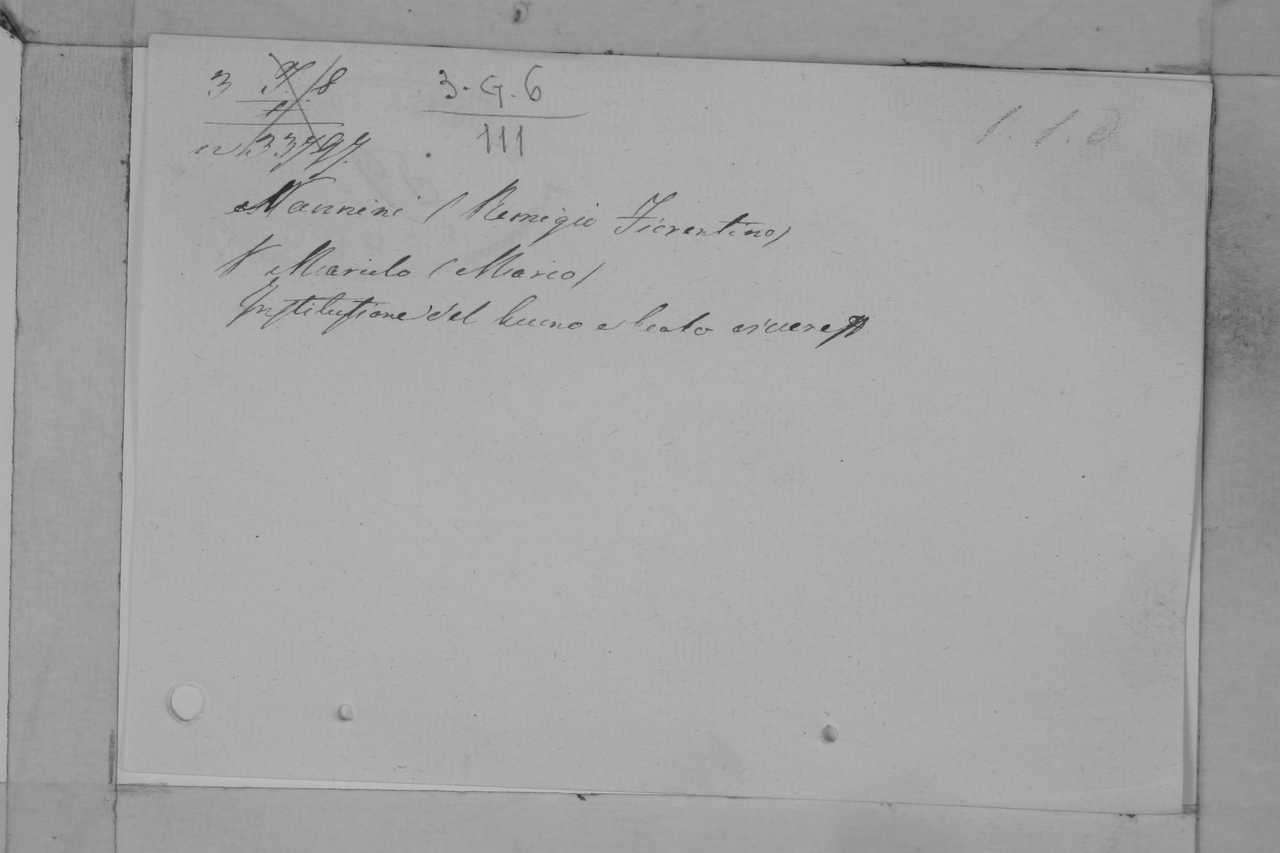 3 F. 8
3. G. 6
111
33797.
Nannini (Remigio Fiorentino)
V Marulo (Marco)
Institutione del buono e beato vivere